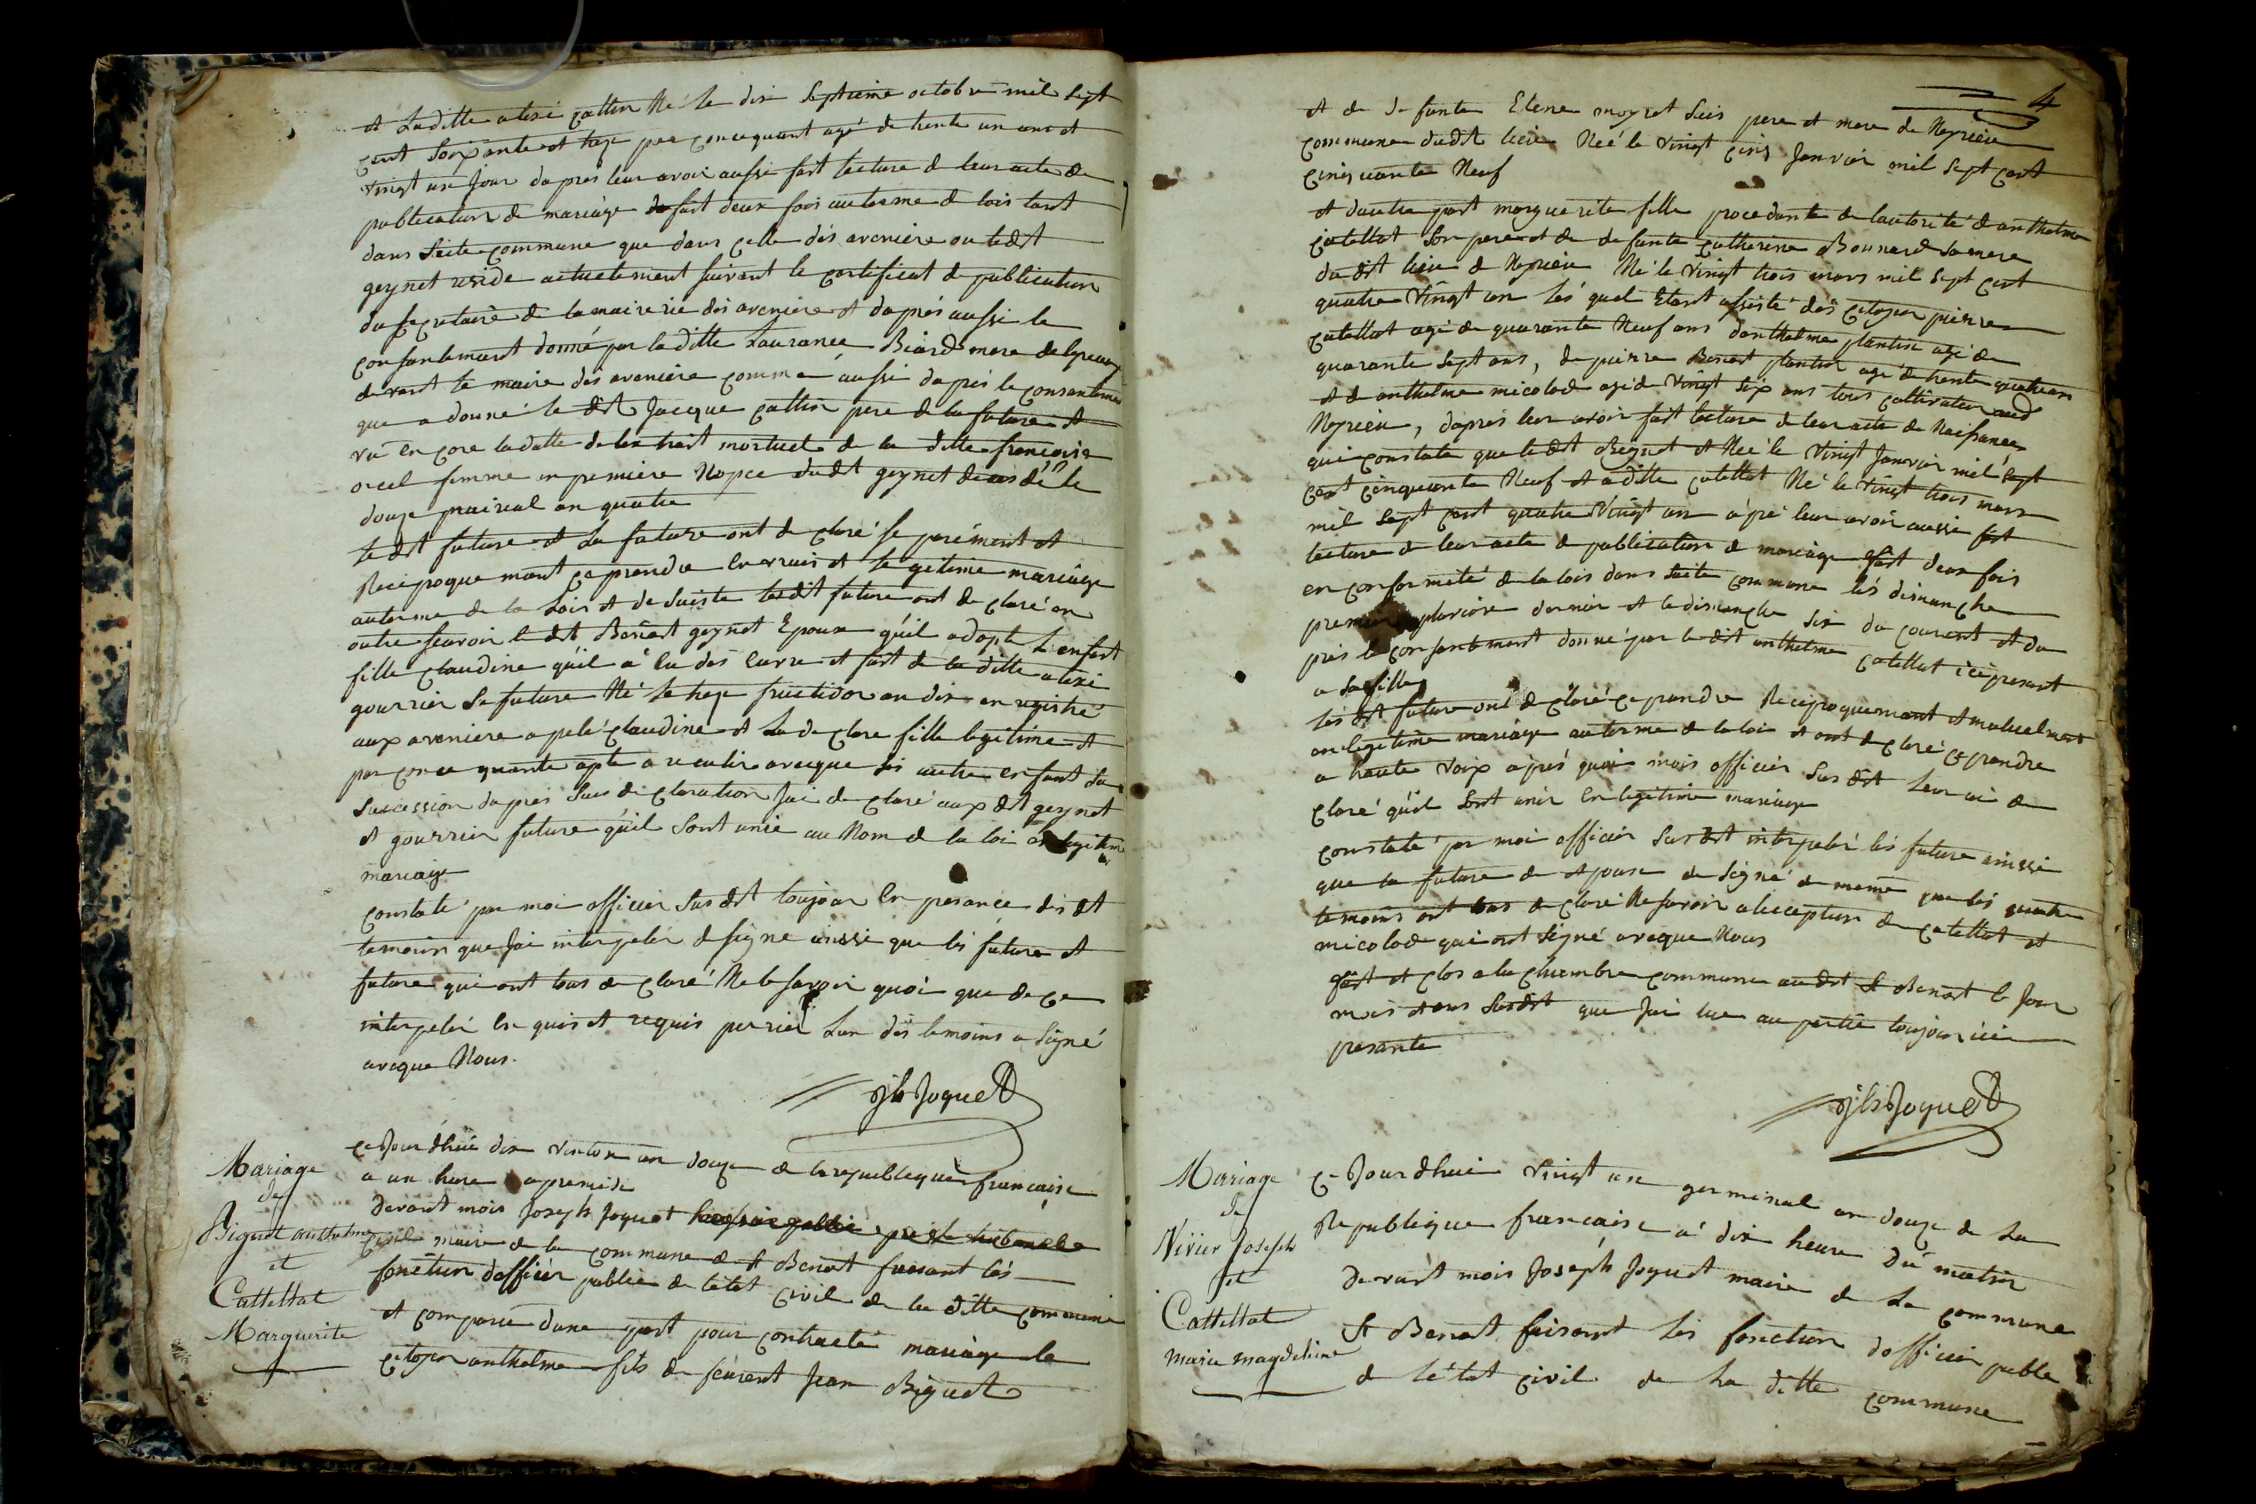 et laditte alexi cattin Né le dix Septieme octobre mil sept
cent soixante et treze par consequant agé de trente un ans et
vingt un Jour dapres leur avoir aussi fait lecture de leur acte de
publication de mariage fait deux fois au terme de lois tant
dans cette commune que dans celle dés avenière ou ledit
geynet reside actuelement suivant le certificat de publication
du secretaire de la mairerie dés avenière et daprés aussi le
consentement donné par la ditte Laurance Biard mere
devant le maire dés avenière comme aussi daprés le consantement
que a donné le dit Jacque cattin pere de la future et
vu en core la datte de lextrait mortuel de la ditte francoise
femme en premiere Nopce dudit geynet decedé le
douze prairial an quatre
le dit future et la future ont de claré séparémént et
Reciproque mant ce prendre en vrais et legitime mariage
au terme de la Lois et de suiste ledit future ont de claré en
outre scavoir le dit Benoit geynet Epoux quil adopte L'enfant
fille claudine quil a Eu des Euvre et fait de la ditte alexi
gourrier Sa future Né le treze fructidor an dix en registré
aux aveniere apelé claudine et La de clare fille legitime et
par conce quante apte a reculir avecque sés autre enfant sa
Succession dapres Sues de claration Jai de claré aux dit geynet
et gourrier future quil sont unie au Nom de la loi en legitime
mariage
constaté par moi officier Sus dit toujour En presance dés dit
temoin que Jai interpeler de signe ainssi que lés future et
future qui ont tous de claré Ne le savoir quoi que de ce
interpeler En quis et requis perrier Lun dés temoins a Signé
aveque Nous.
Jh Joquet
Mariage
de
Biguet anthelme
et
Cattellat
Marguerite
ce Jour dhui dix ventos an douze de la republeque francaise
a un heure apremidi
devant mois Joseph Joquet
maire de la commune de St Benoit faisant lés
fonction dofficier public de letat civil de la ditte commune
et comparu dune part pour contracté mariage le
citoyen anthelme fils de feurent Jean Biguet
4
et de defunte Elene moyret Sués pere et mere de Neprieu
commune dudit lieu Née le vingt cinq Janvier mil sept cent
cinquante Neuf
et dautre part marguerite fille procedante de lautorité danthelme
catellat Son pere et de defunte catherine Bonnard Sa mere
du dit lieu de Neprieu Né le vingt trois mars mil sept cent
quatre vingt un lés quel Etant assisté dés Citoyen pierre
catellat agé de quarante Neuf ans danthelme plantin agé de
quarante sept ans, de pierre Benoit plantin agé de trente quatre ans
et de anthelme micolod agé de vingt six ans tous cultivateur audit
Neprieu, daprés leur avoir fait lecture de leur acte de Naissance
qui constate que ledit Biguet et Née le vingt Janvier mil sept
cent cinquante Neuf et aditte catellat Né le vingt trois mars
mil sept cent quatre vingt un aprè leur avoir aussi fait
lecture de leur acte de publication de mariage fait deux fois
en conformité de la lois dans cette commune lés dimanche
premier pluviose dernier et le dimenche six du courent et da
près le consentement donné par le dit anthelme catellat icé present
a sa fille
lés dit future ont de claré ce prendre Reciproquement et mutuelment
en legitime mariage au terme de la loi et ont de claré ce prendre
a haute voix aprés quoi mois officier Sus dit leur ai de
claré quil sont unir En legitime mariage
constaté par moi officier Sus dit interpeler lés future ainssi
que la future de et poux de Signé de meme que lés quatre
temoins ont tous de claré Ne savoir a lexception de catellat et
micolod qui ont signé aveque Nous
fait et clos a la chambre commune audit St Benoit le Jour
mois et ans Susdit que Jai lue au partie toujour icii
presante
Jh Joquet
Mariage
de
Vivier Joseph
et
Cattellat
marie magdeleine
Ce Jour dhui vingt un germinal an douze de La
Republique francaise á dix heure Du matin
devant mois Joseph Joquet maire de La commune
St Benoit faisant Lés fonction dofficier public
de létat civil de La ditte commune